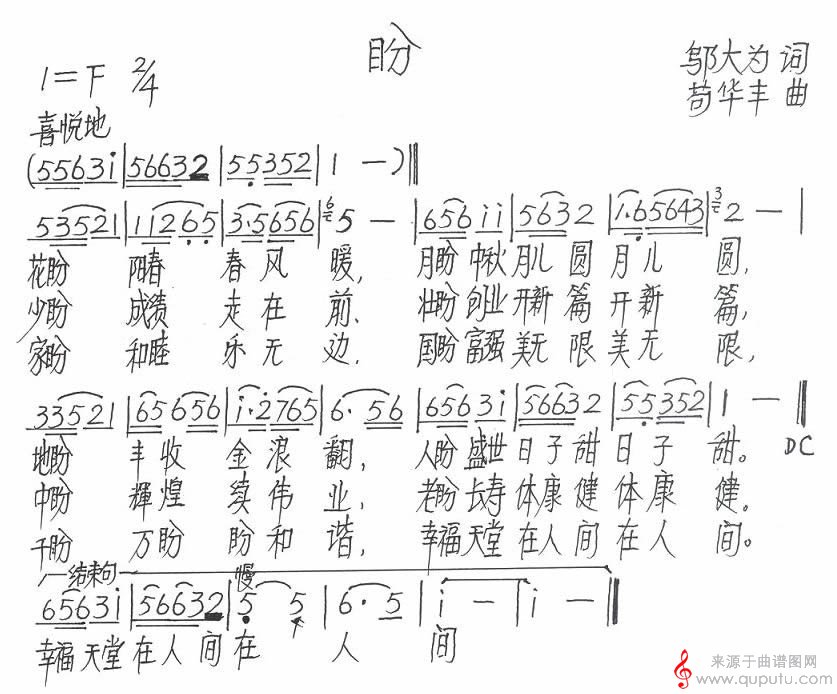 盼
1=F 2/4
邬大为 词
苟华丰 曲
喜悦地
(55631|56632|55352|1 —)‖
53521|11265|3·5656|6 5 —|656 11|56632|1·65643|3 2 —|
花盼 阳春 春风 暖, 月盼 中秋 月儿 圆 月儿 圆,
少盼 成绩 走在 前. 壮盼 创业 开新 篇 开新 篇,
家盼 和睦 乐无 边, 国盼 富强 美无 限 美无 限,
33521|65656|1·2765|6·56|65631|56632|55352|1 —‖
地盼 丰收 金浪 翻, 人盼 盛世 日子 甜 日子 甜。 DC
中盼 輝煌 续伟 业, 老盼 长寿 体康 健 体康 健。
千盼 万盼 盼和 谐, 幸福 天堂 在人 间 在人 间。
结束句 慢
65631|56632|5 5|6·5|1 —|1 —‖
幸福 天堂 在人 间 在 人 间
来源于曲谱图网
www.quputu.com